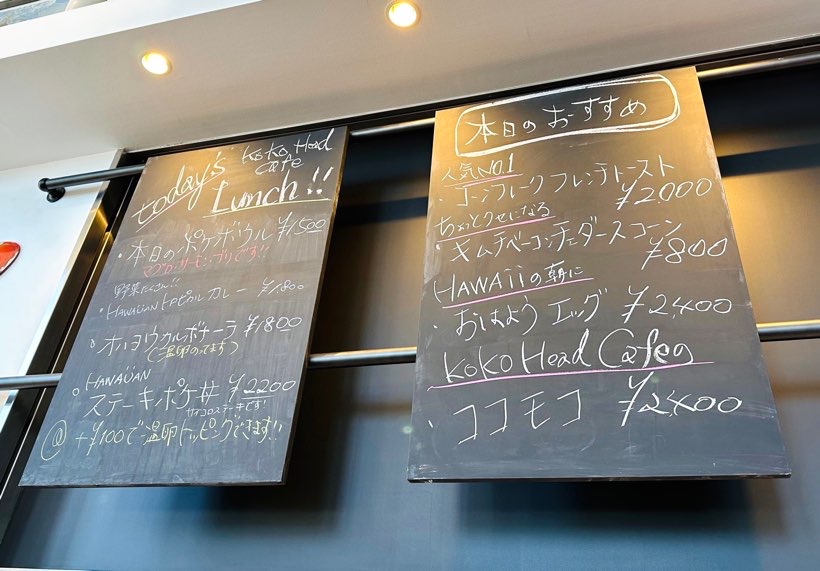 today's KoKo Head
cafe
Lunch!!
・本日のポケボウル ¥1500
マグロ・サーモン・ブリです!!
野菜たくさん!!
・HAWAIIAN トロピカルカレー ¥1,800
・オハヨウカルボナーラ ¥1800
(温卵のってます)
HAWAIIAN
・ステーキポケ丼 ¥2200
サイコロステーキです!
@ +¥100で温卵トッピングできます!!
本日のおすすめ
人気NO.1
・コーンフレークフレンチトースト
¥2000
ちょっとクセになる
・キムチベーコンチェダースコーン
¥800
HAWAiiの朝に
・おはようエッグ ¥2,400
KoKo Head Cafeの
・ココモコ ¥2,400